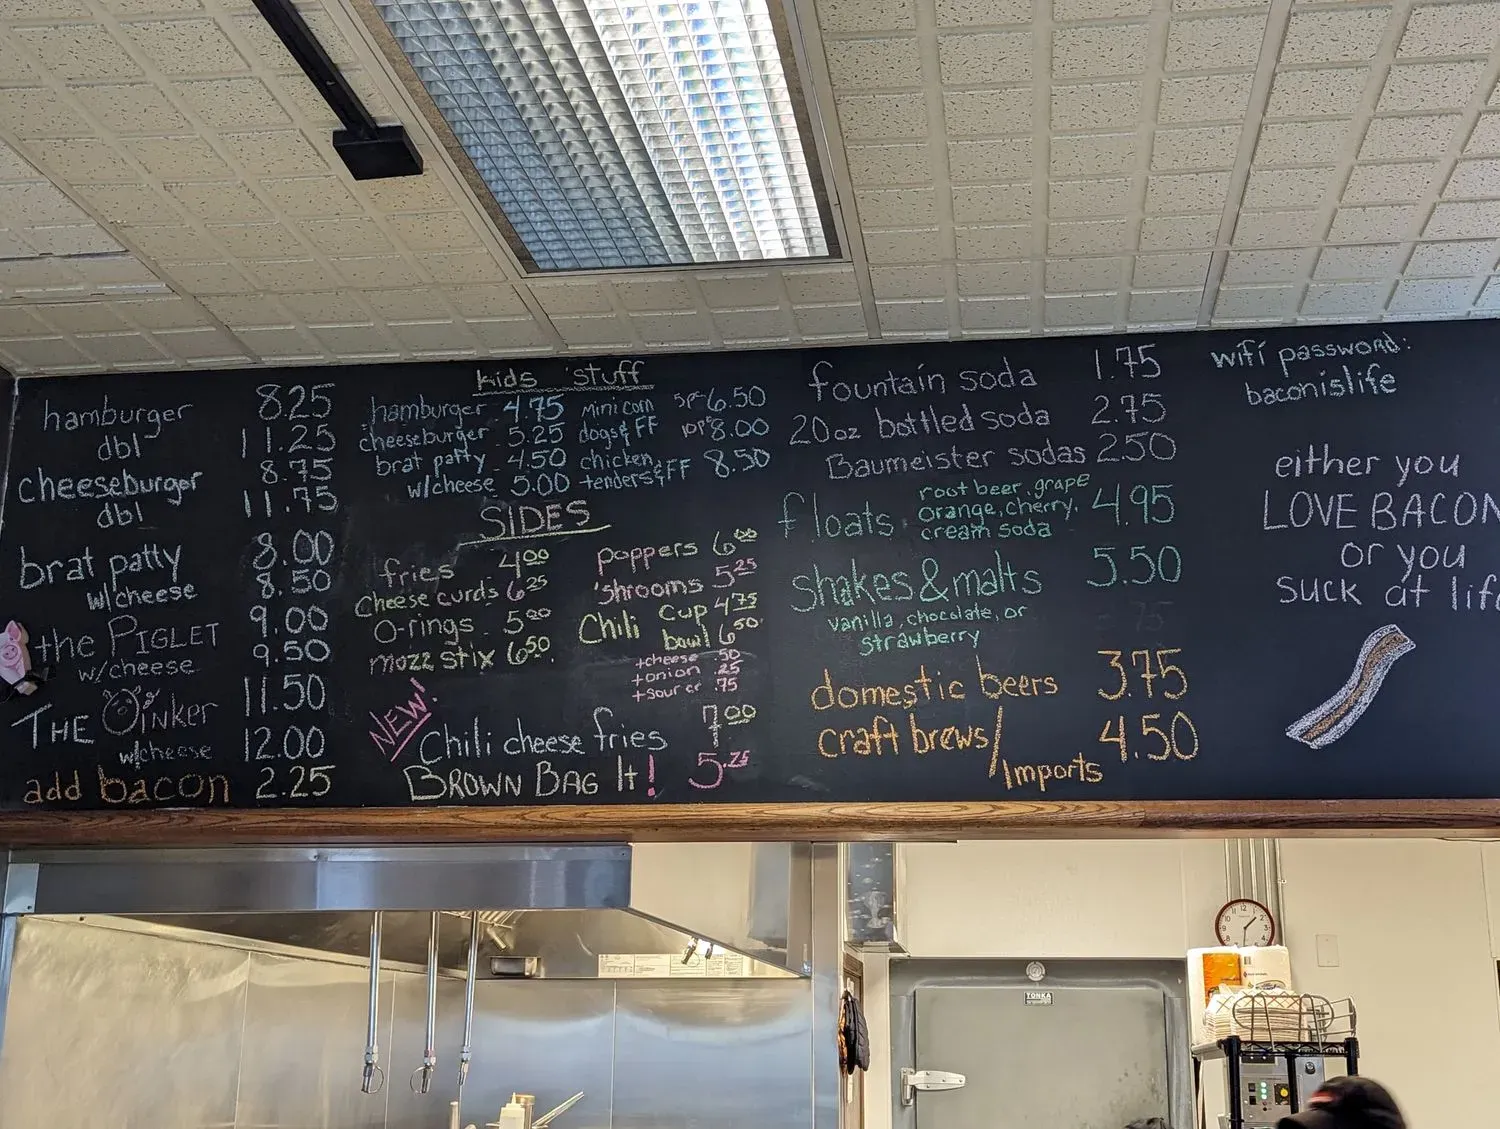 hamburger 8.25
dbl 11.25
cheeseburger 8.75
dbl 11.75
brat patty 8.00
w/cheese 8.50
the PIGLET 9.00
w/cheese 9.50
THE OINKER 11.50
w/cheese 12.00
add bacon 2.25
kids stuff
hamburger 4.75
cheeseburger 5.25
brat patty 4.50
w/cheese 5.00
mini corn 5pc 6.50
dogs & FF 10pc 8.00
chicken
tenders & FF 8.50
SIDES
fries 4.00
Cheese curds 6.25
O-rings 5.00
mozz stix 6.50
poppers 6.00
'shrooms 5.25
Chili cup 4.75
bowl 6.50
+cheese .50
+onion .25
+sour cr .75
NEW!
Chili cheese fries 7.00
BROWN BAG It! 5.25
fountain soda 1.75
20oz bottled soda 2.75
Baumeister sodas 2.50
floats root beer, grape 4.95
orange, cherry,
cream soda
shakes & malts 5.50
vanilla, chocolate, or
strawberry
domestic beers 3.75
craft brews/ 4.50
Imports
wifi password:
baconislife
either you
LOVE BACON
or you
SUCK at life
TONKA